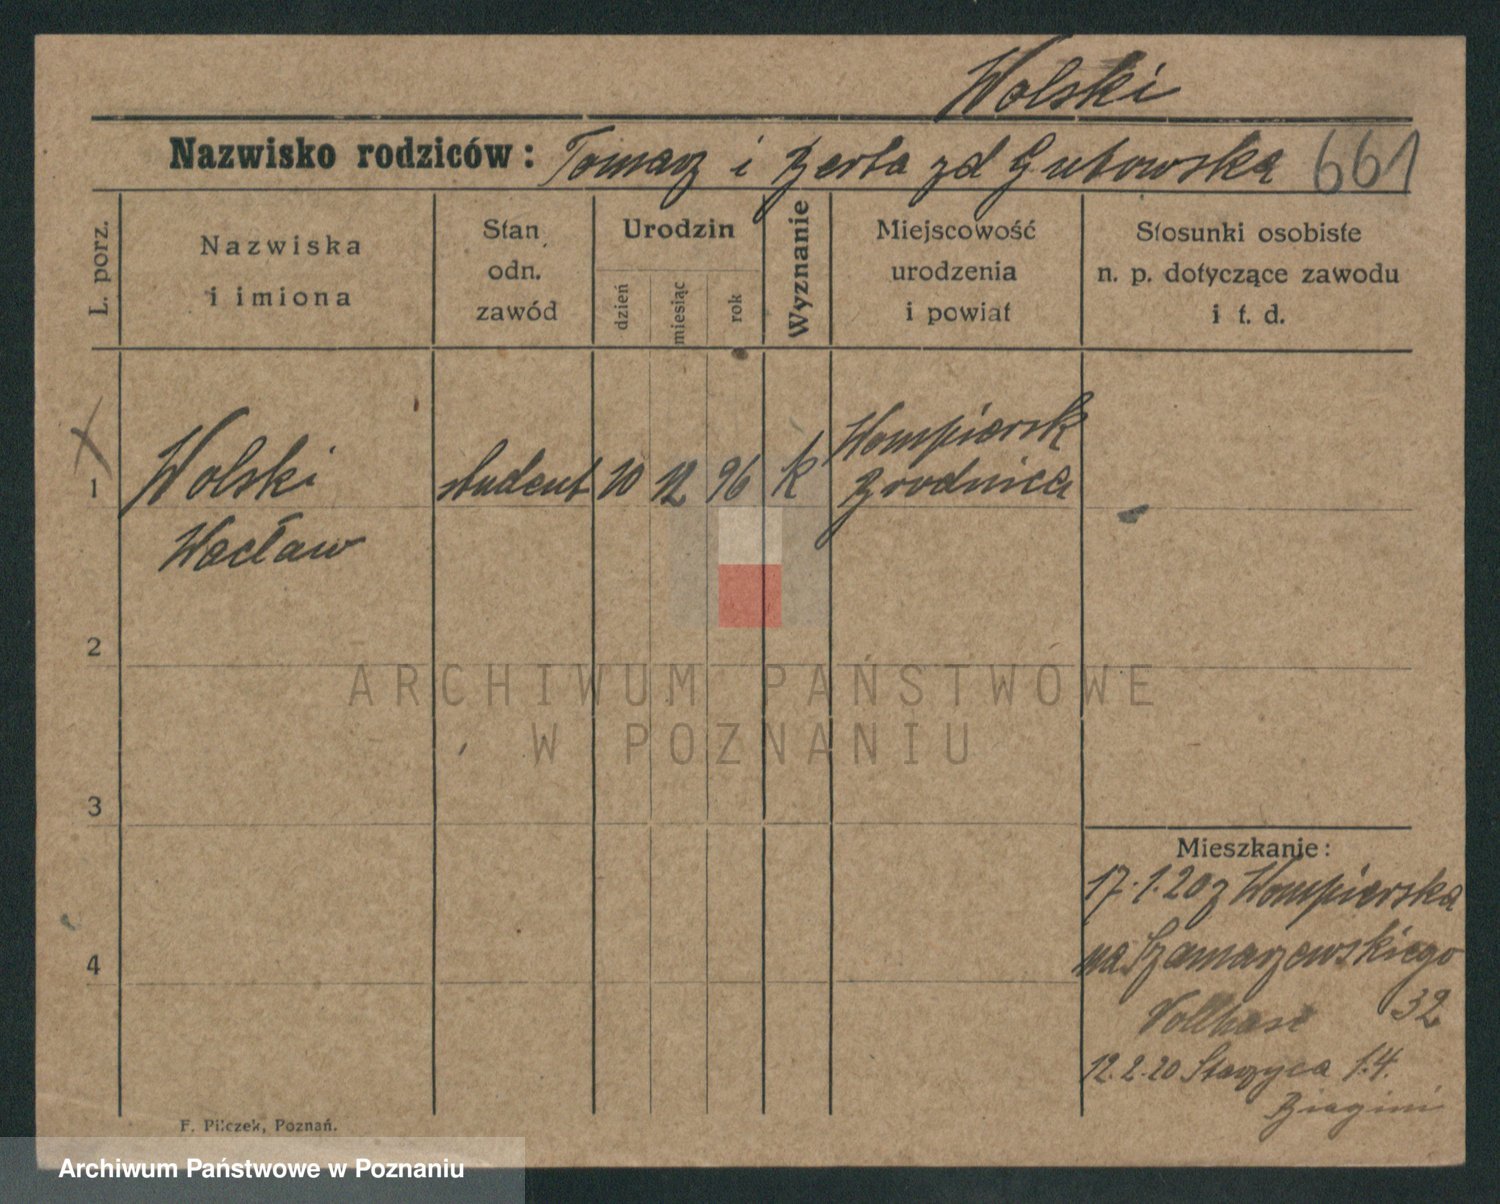 Wolski
Nazwisko rodziców: Tomasz i Berta zd Gutowska 661
L. porz.
Nazwiska
i imiona
Stan
odn.
zawód
Urodzin
dzień
miesiąc
rok
Wyznanie
Miejscowość
urodzenia
i powiat
Stosunki osobiste
n. p. dotyczące zawodu
i t. d.
1
Wolski
Wacław
student
10
12
96
k
Wompiersk
Brodnica
2
3
4
ARCHIWUM PAŃSTWOWE
W POZNANIU
Mieszkanie:
17.1.20 z Wompierska
na Szamarzewskiego
32
12.2.20 1.4.
F. Pilczek, Poznań.
Archiwum Państwowe w Poznaniu